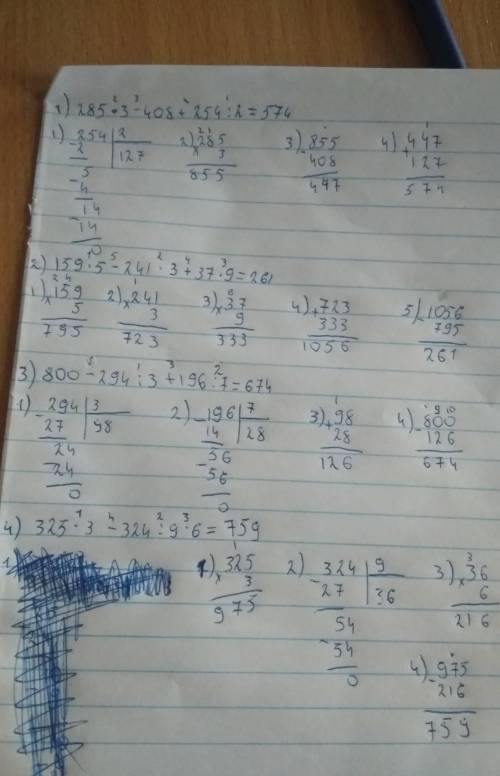 1) 285·3-408+254:2=574
1) 254 2 2) 285 3) 855 4) 447
-2 127 × 3 -408 +127
5 855 447 574
-4
14
-14
0
2) 159·5-241·3+37·9=261
1) ×159 2) ×241 3) ×37 4) +723 5) -1056
5 3 9 333 795
795 723 333 1056 261
3) 800-294:3+196:7=674
1) -294 3 2) -196 7 3) +98 4) -800
27 98 14 28 28 126
24 56 126 674
-24 -56
0 0
4) 325·3-324:9·6=759
1) ×325 2) -324 9 3) ×36
3 27 36 6
975 54 216
-54
0 4) -975
216
759